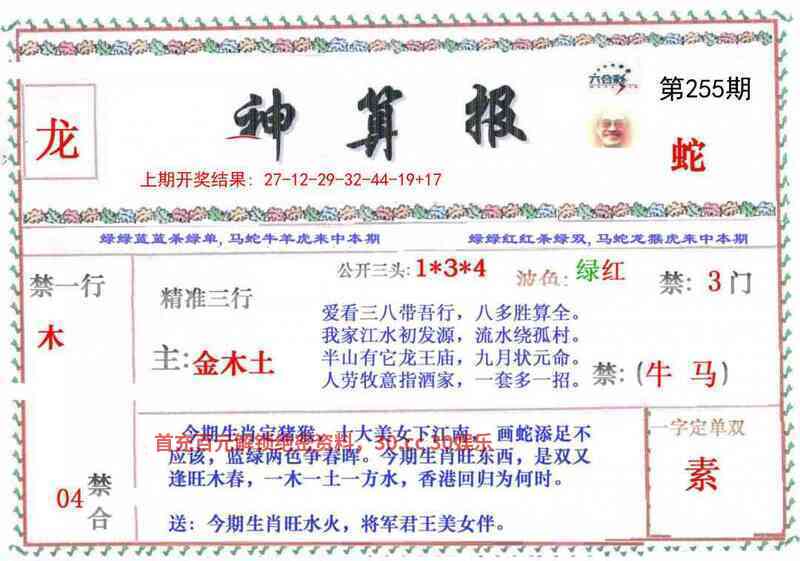 六合彩
第255期
龙
神算报
蛇
上期开奖结果：27-12-29-32-44-19+17
绿绿蓝蓝杀绿单,马蛇牛羊虎来中本期
绿绿红红杀绿双,马蛇龙猴虎来中本期
禁一行
木
精准三行
主:金木土
公开三头:1*3*4
波色:绿红
禁:3门
爱看三八带吾行，八多胜算全。
我家江水初发源，流水绕孤村。
半山有它龙王庙，九月状元命。
人劳牧意指酒家，一套多一招。
禁:(牛 马)
04
禁合
今期生肖定猪猴，十大美女下江南。画蛇添足不
首充百元解锁绝密资料，30.cc 30娱乐
应该，蓝绿两色争春晖。今期生肖旺东西，是双又
逢旺木春，一木一土一方水，香港回归为何时。
送：今期生肖旺水火，将军君王美女伴。
一字定单双
素